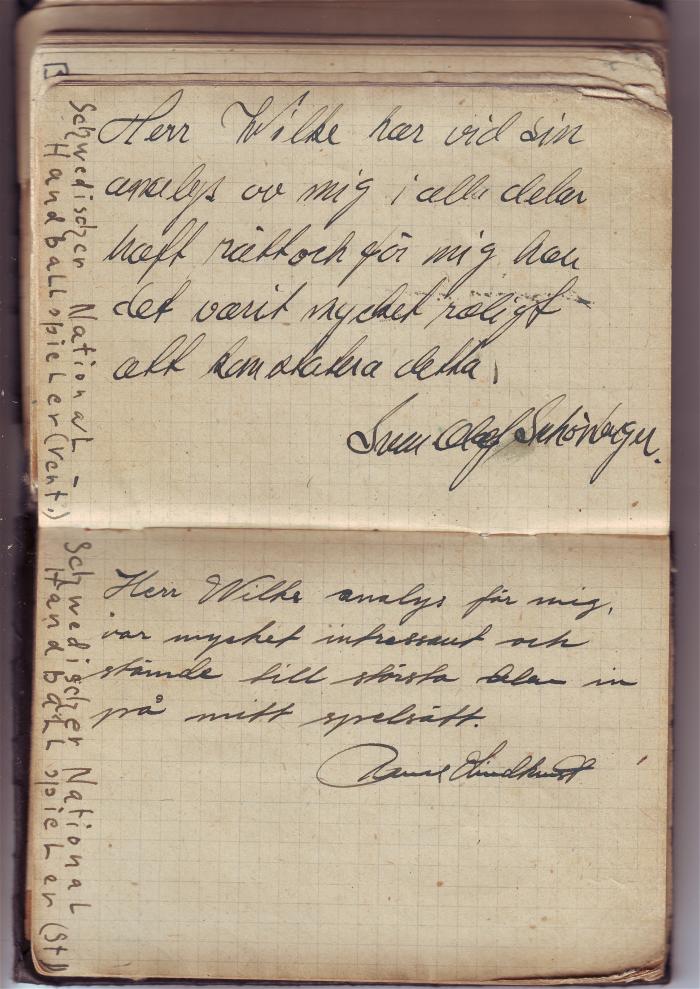 Herr Wilke har vid sin
analys av mig i alla delar
haft rätt och för mig har
det varit mycket roligt
att konstatera detta.
Sven Olof
Schwedischer National-
Handballspieler (Vent.)
Herr Wilke analys för mig,
var mycket intressant och
stämde till största delen in
på mitt spelsätt.
Schwedischer National
Handballspieler (St)